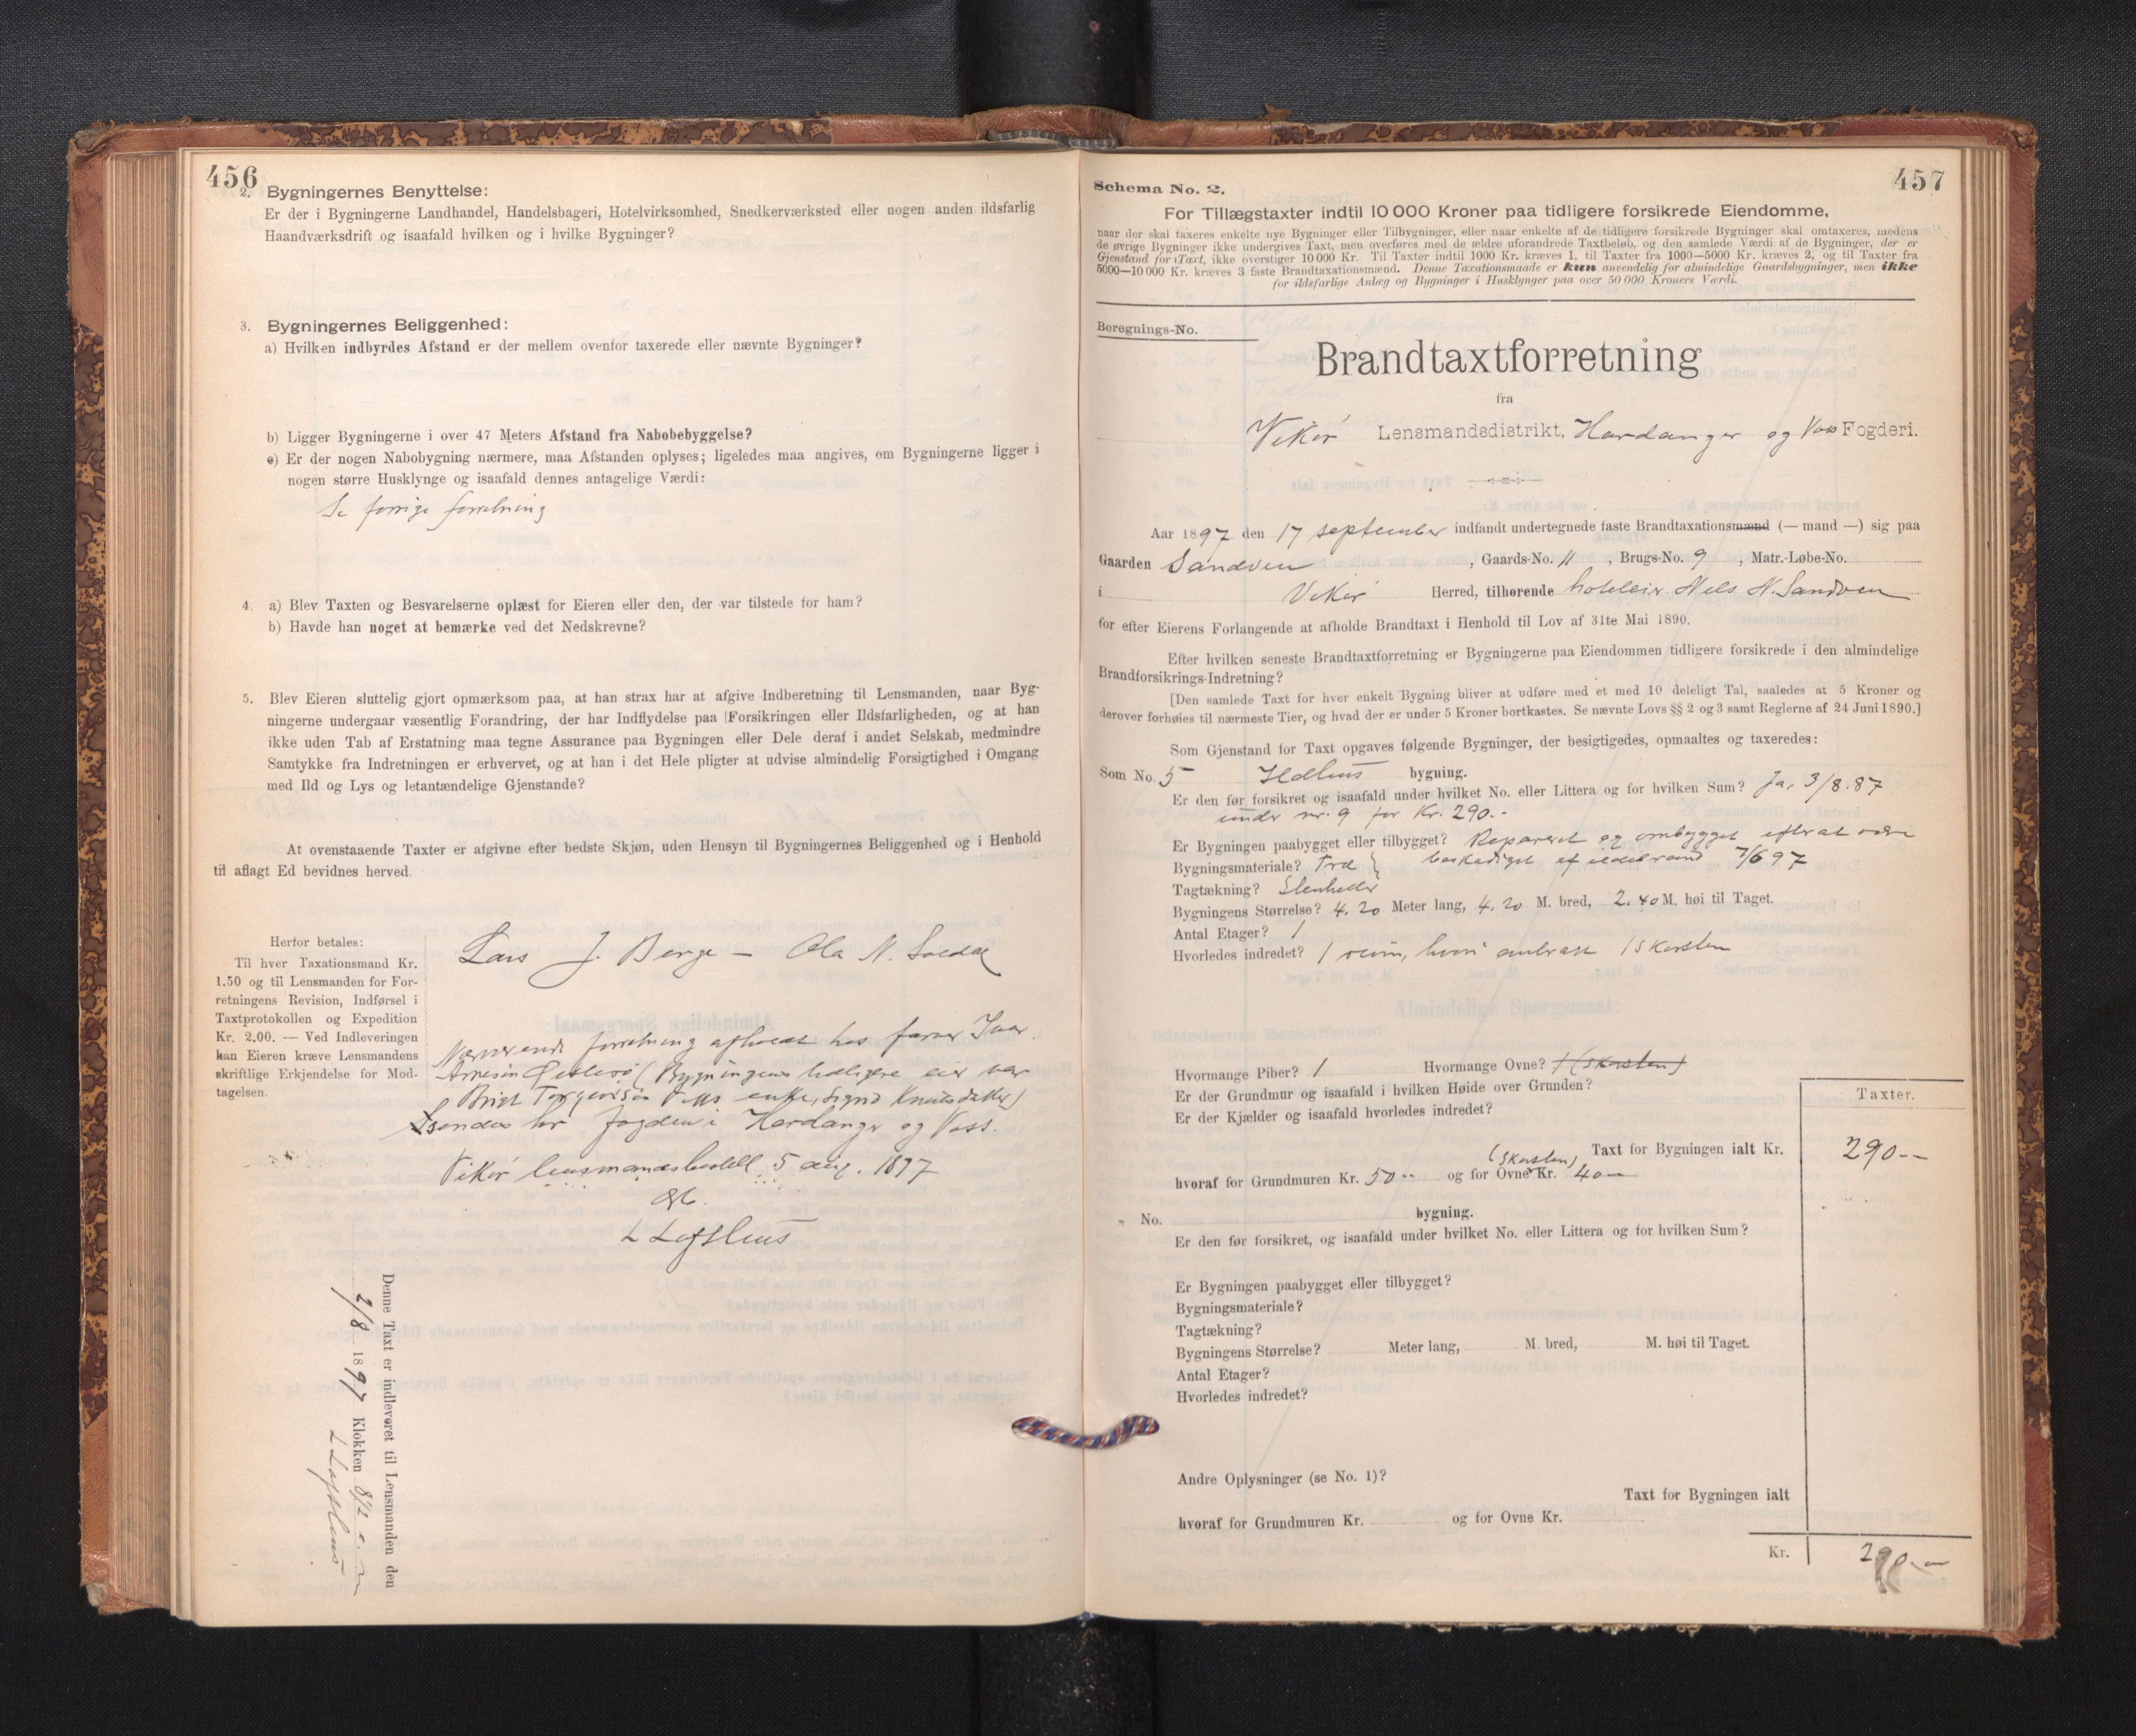 456
2. Bygningernes Benyttelse:
Er der i Bygningerne Landhandel, Handelsbageri, Hotelvirksomhed, Snedkerværksted eller nogen anden ildsfarlig
Haandværksdrift og isaafald hvilken og i hvilke Bygninger?
3. Bygningernes Beliggenhed:
a) Hvilken indbyrdes Afstand er der mellem ovenfor taxerede eller nævnte Bygninger?
b) Ligger Bygningerne i over 47 Meters Afstand fra Nabobebyggelse?
c) Er der nogen Nabobygning nærmere, maa Afstanden oplyses; ligeledes maa angives, om Bygningerne ligger i
nogen større Husklynge og isaafald dennes antagelige Værdi:
Se forrige forretning
4. a) Blev Taxten og Besvarelserne oplæst for Eieren eller den, der var tilstede for ham?
b) Havde han noget at bemærke ved det Nedskrevne?
5. Blev Eieren sluttelig gjort opmærksom paa, at han strax har at afgive Indberetning til Lensmanden, naar Byg-
ningerne undergaar væsentlig Forandring, der har Indflydelse paa Forsikringen eller Ildsfarligheden, og at han
ikke uden Tab af Erstatning maa tegne Assurance paa Bygningen eller Dele deraf i andet Selskab, medmindre
Samtykke fra Indretningen er erhvervet, og at han i det Hele pligter at udvise almindelig Forsigtighed i Omgang
med Ild og Lys og letantændelige Gjenstande?
At ovenstaaende Taxter er afgivne efter bedste Skjøn, uden Hensyn til Bygningernes Beliggenhed og i Henhold
til aflagt Ed bevidnes herved.
Lars J. Berge — Ola N.
Herfor betales:
Til hver Taxationsmand Kr.
1.50 og til Lensmanden for For-
retningens Revision, Indførsel i
Taxtprotokollen og Expedition
Kr. 2.00. — Ved Indleveringen
kan Eieren kræve Lensmandens
skriftlige Erkjendelse for Mod-
tagelsen.
Nærværende forretning afholdt hos farver Ivar
Arnesen (Bygningens tidligere eier var
enke, Sigrid Knutsdatter)
sendes hr fogden i Hardanger og Voss.
Vikør lensmandsbestill 5 aug. 1897
L Lofthus
Denne Taxt er indleveret til Lensmanden den
2/8 1897 Klokken 8 1/2 e. m
L Lofthus
457
Schema No. 2.
For Tillægstaxter indtil 10 000 Kroner paa tidligere forsikrede Eiendomme,
naar der skal taxeres enkelte nye Bygninger eller Tilbygninger, eller naar enkelte af de tidligere forsikrede Bygninger skal omtaxeres, medens
de øvrige Bygninger ikke undergives Taxt, men overføres med de ældre uforandrede Taxtbeløb, og den samlede Værdi af de Bygninger, der er
Gjenstand for Taxt, ikke overstiger 10 000 Kr. Til Taxter indtil 1000 Kr. kræves 1, til Taxter fra 1000—5000 Kr. kræves 2, og til Taxter fra
5000—10 000 Kr. kræves 3 faste Brandtaxationsmænd. Denne Taxationsmaade er kun anvendelig for almindelige Gaardsbygninger, men ikke
for ildsfarlige Anlæg og Bygninger i Husklynger paa over 50 000 Kroners Værdi.
Beregnings-No.
Brandtaxtforretning
fra
Vikør Lensmandsdistrikt, Hardanger og Voss Fogderi.
Aar 1897 den 17 september indfandt undertegnede faste Brandtaxationsmænd (— mand —) sig paa
Gaarden Sandven, Gaards-No. 11, Brugs-No. 9, Matr.-Løbe-No.
i Vikør Herred, tilhørende hoteleier Nils N. Sandven
for efter Eierens Forlangende at afholde Brandtaxt i Henhold til Lov af 31te Mai 1890.
Efter hvilken seneste Brandtaxtforretning er Bygningerne paa Eiendommen tidligere forsikrede i den almindelige
Brandforsikrings-Indretning?
[Den samlede Taxt for hver enkelt Bygning bliver at udføre med et med 10 deleligt Tal, saaledes at 5 Kroner og
derover forhøies til nærmeste Tier, og hvad der er under 5 Kroner bortkastes. Se nævnte Lovs §§ 2 og 3 samt Reglerne af 24 Juni 1890.]
Som Gjenstand for Taxt opgaves følgende Bygninger, der besigtigedes, opmaaltes og taxeredes:
Som No. 5 Ildhus bygning.
Er den før forsikret og isaafald under hvilket No. eller Littera og for hvilken Sum? Ja, 3/8.87
under nr. 9 for Kr. 290.-
Er Bygningen paabygget eller tilbygget? Reparert og ombygget efterat være
Bygningsmateriale? træ } beskadiget af ildebrand 7/6 97
Tagtækning? Stenheller
Bygningens Størrelse? 4.20 Meter lang, 4.20 M. bred, 2.40 M. høi til Taget.
Antal Etager? 1
Hvorledes indredet? 1 rum, hvori 1 skorsten
Hvormange Piber? 1 Hvormange Ovne? 1 (skorsten)
Er der Grundmur og isaafald i hvilken Høide over Grunden?
Er der Kjælder og isaafald hvorledes indredet?
Taxter.
(skorsten) Taxt for Bygningen ialt Kr. 290--
hvoraf for Grundmuren Kr. 50-- og for Ovne Kr. 40—
„ No. bygning.
Er den før forsikret, og isaafald under hvilket No. eller Littera og for hvilken Sum?
Er Bygningen paabygget eller tilbygget?
Bygningsmateriale?
Tagtækning?
Bygningens Størrelse? Meter lang, M. bred, M. høi til Taget.
Antal Etager?
Hvorledes indredet?
Andre Oplysninger (se No. 1)?
Taxt for Bygningen ialt
hvoraf for Grundmuren Kr. og for Ovne Kr.
Kr. 290.—